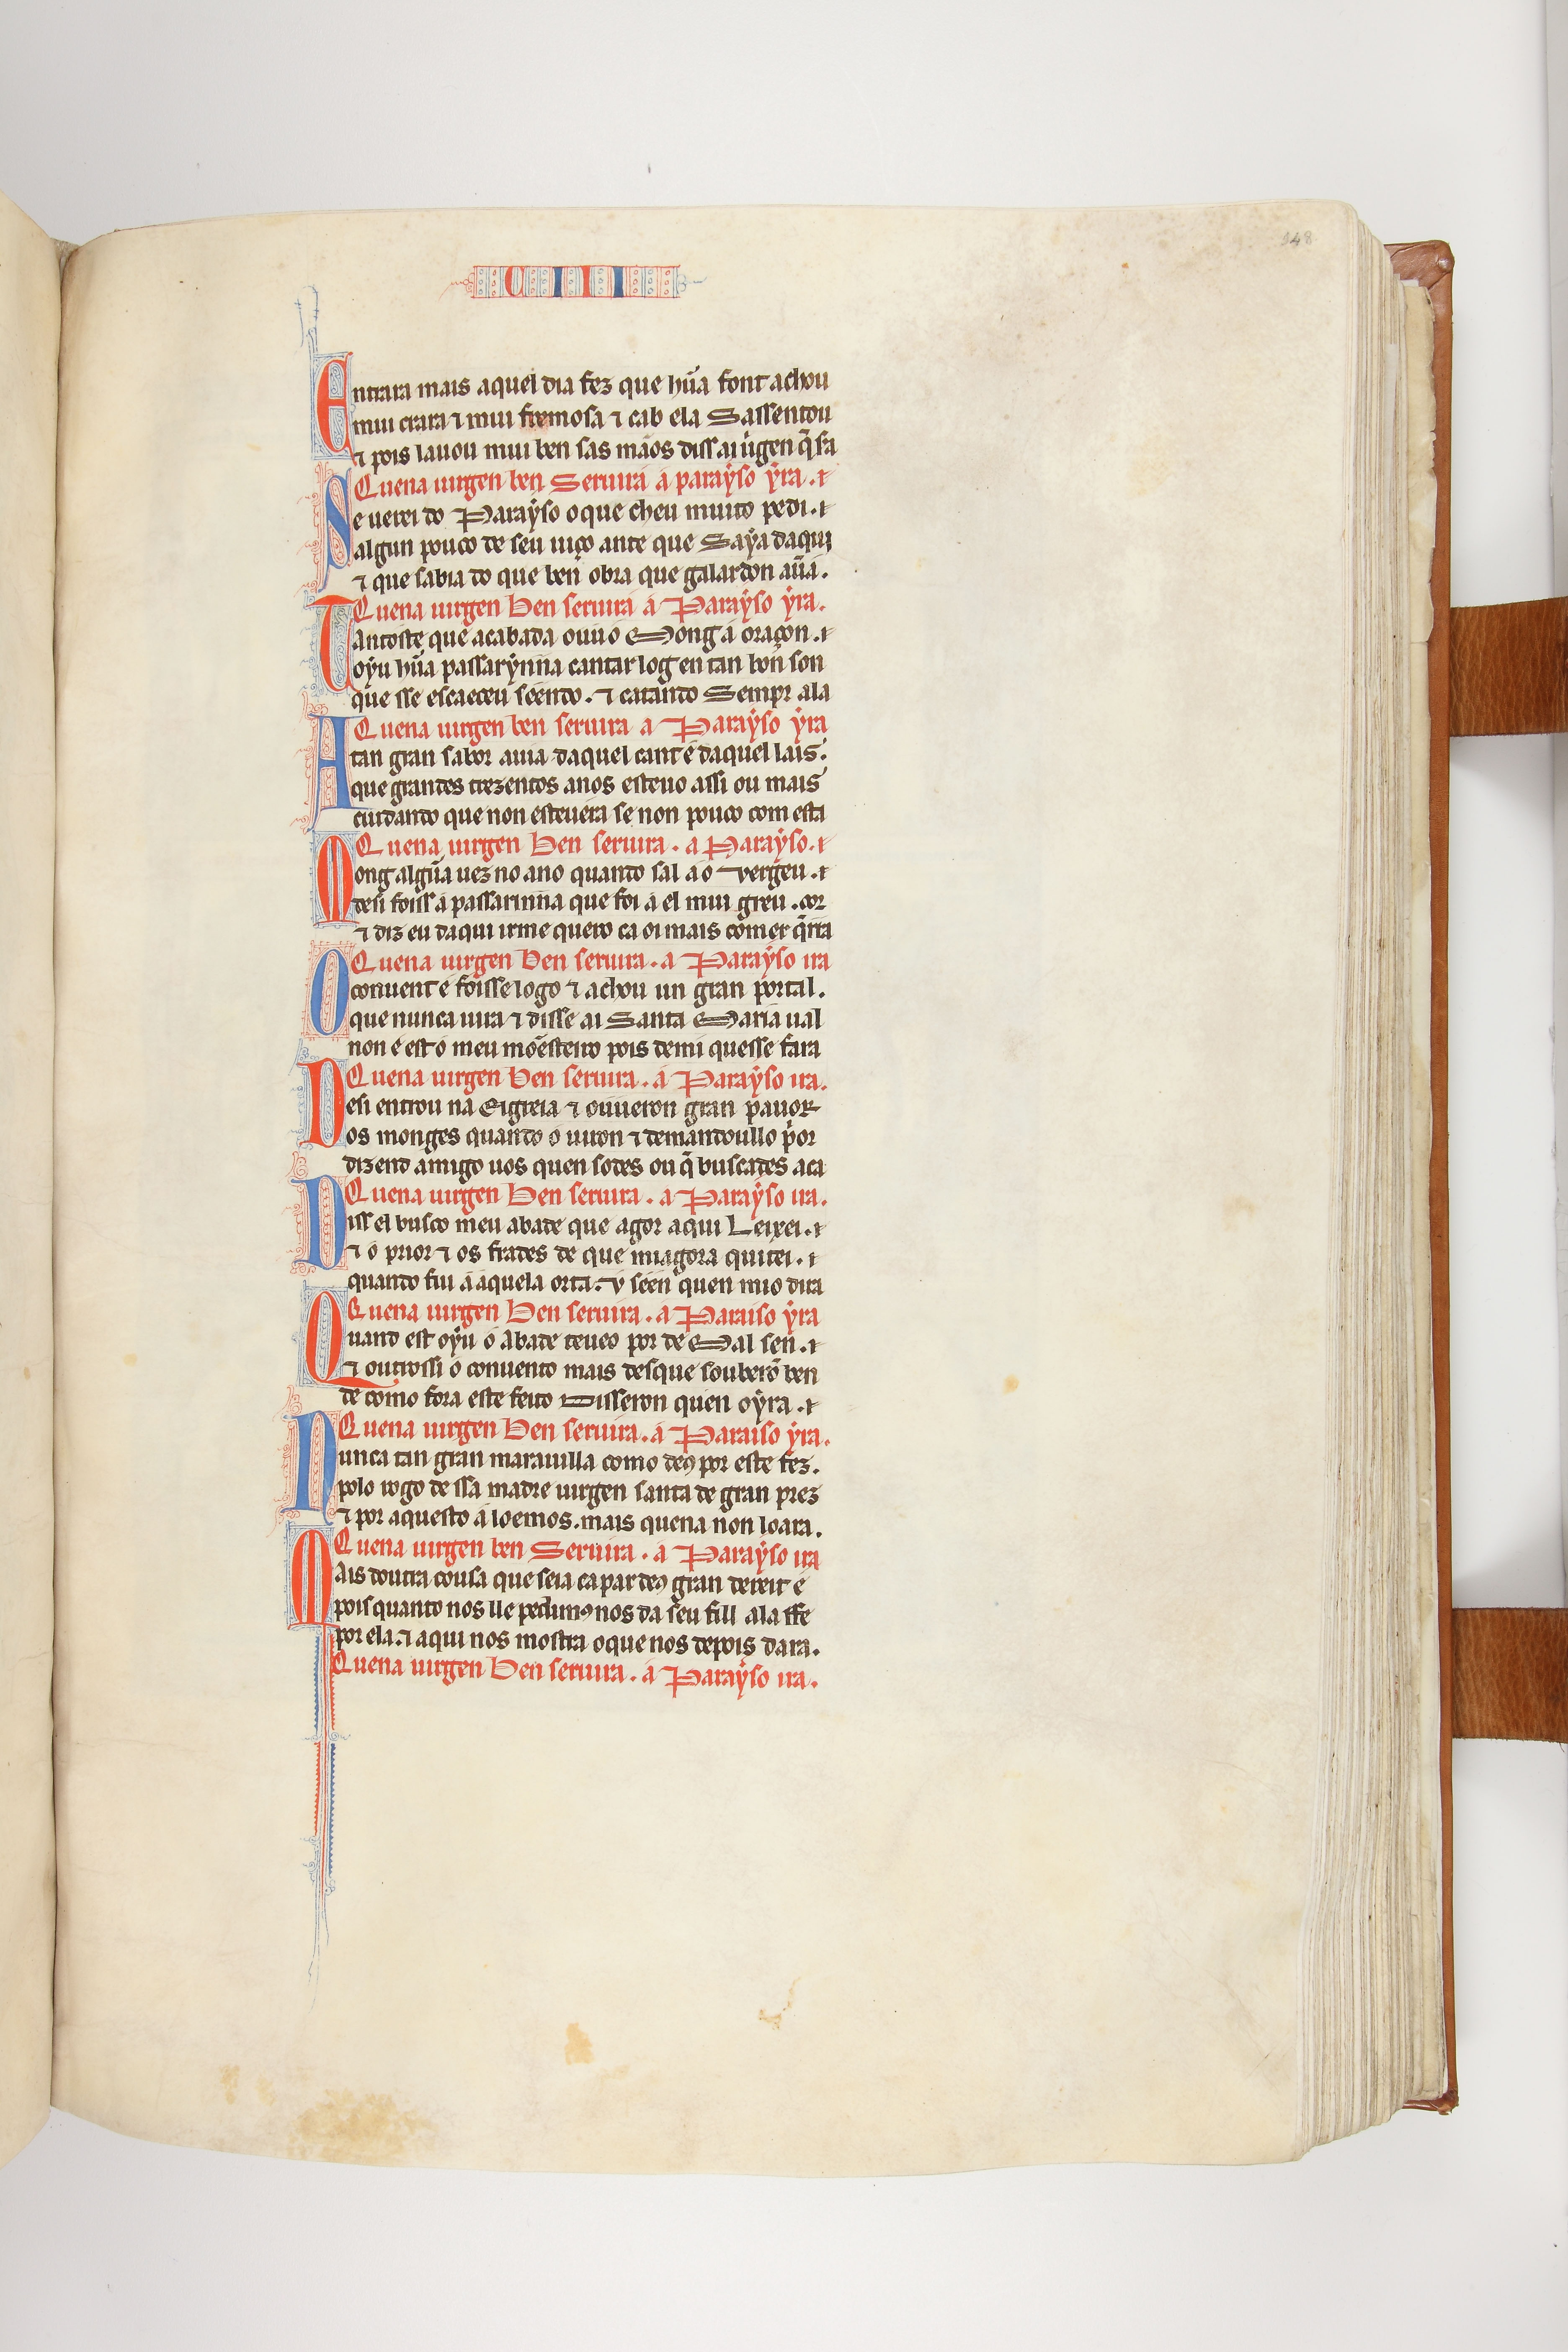 148
CIII
Entrara mais aquel dia fez que hũa font achou
mui crara ⁊ mui fremosa ⁊ cab ela Sassentou
⁊ pois lauou mui ben sas mãos diss ai uirgen q̃ sṙa
Quena uirgen ben Seruirá á paraẏso ẏra. ⁊
Se uerei do Paraẏso o que cheu muito pedi. ⁊
algun pouco de seu uiço ante que Saẏa daqui
⁊ que sabia do que ben obra que galardon au̾á.
Quena uirgen ben seruirá á Paraẏso ẏra.
Tantoste que acabada ouuó ó Mong á oraçon. ⁊
oẏu hũa passarẏnna cantar log en tan bon son
que sse escaeceu séendo. ⁊ catando Sempr ala
Quena uirgen ben seruira a Paraẏso ẏra
Atan gran sabor auia daquel cant é daquel lais.
que grandes trezentos anos esteuo assi ou mais
cuidando que non esteuera se non pouco com esta
Quena uirgen ben seruira. a Paraẏso. ⁊
Mong algũa uez no ano quando sal a o vergeu. ⁊
desi foiss a passarinna que foi á el mui greu. cor
⁊ diz eu daqui irme quero ca oi mais comer q̃rra
Quena uirgen ben seruira. a Paraẏso ira
O conuent é foisse logo ⁊ achou un gran portal.
que nunca uira ⁊ disse ai Santa Maria ual
non é est ó meu mõesteiro pois demi quesse fara
Quena uirgen ben seruira. á Paraẏso ira.
Desi entrou na Eigreia ⁊ ouueron gran pauor
os monges quando o uiron ⁊ demandoullo p̾or
dizend amigo uos quen sodes ou q̃ buscades aca
Quena uirgen ben seruira. a Paraẏso ira.
Diss el busco meu abade que agor aqui Leixei. ⁊
⁊ ó prior ⁊ os frades de que miagora quitei. ⁊
quando fui á aquela orta. v séen quen mio dira
Quena uirgen ben seruira. á Paraiso ẏra
Quand est oẏu ó abade teueo por de Mal sen. ⁊
⁊ outrossi ó conuento mais desque souberõ ben
de como fora este feito Disseron quen oẏra. ⁊
Quena uirgen ben seruira. á Paraiso ẏra.
Nunca tan gran marauilla como deꝰ por este fez.
polo rogo de ssa madre uirgen santa de gran prez
⁊ por aquesto á loemos. mais quena non loara.
Quena uirgen ben Seruira. á Paraẏso ira
Mais doutra cousa que seia ca par deꝰ gran dereit é
pois quanto nos lle pedimꝰ nos da seu fill ala ffe
por ela. ⁊ aqui nos mostra o que nos depois dara.
Quena uirgen ben seruira. á Paraẏso ira.